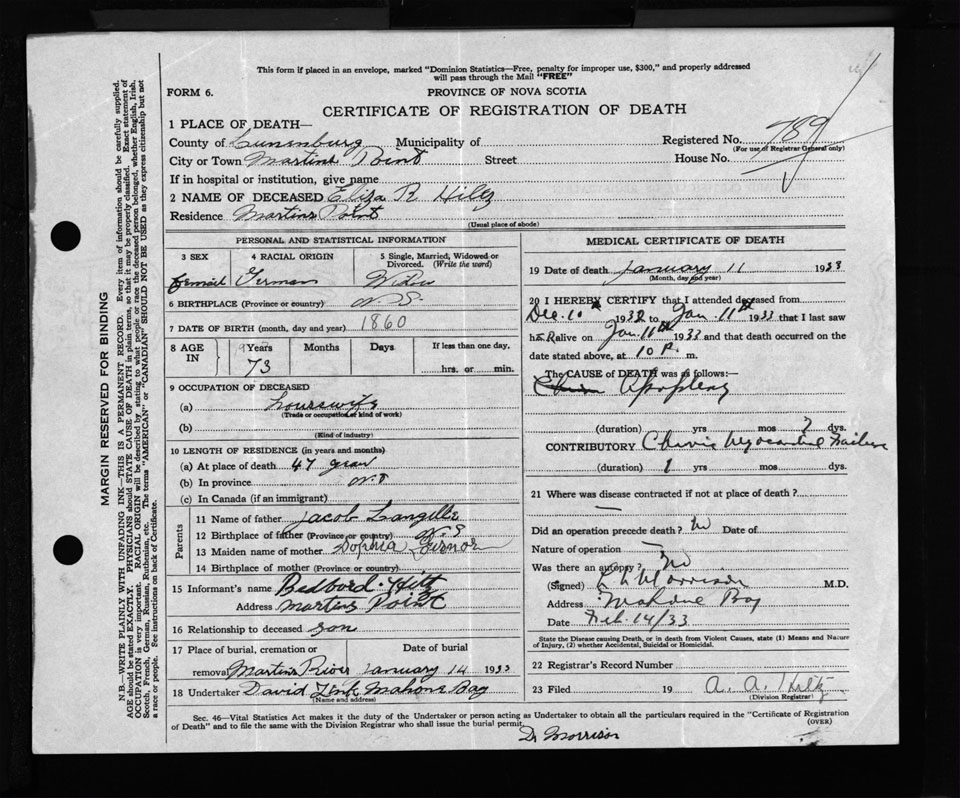 This form if placed in an envelope, marked "Dominion Statistics—Free, penalty for improper use, $300," and properly addressed
will pass through the Mail "FREE"
FORM 6.
PROVINCE OF NOVA SCOTIA
CERTIFICATE OF REGISTRATION OF DEATH
1 PLACE OF DEATH—
County of Lunenburg Municipality of
Registered No. 789
(For use of Registrar General only)
City or Town Martins Point Street House No.
If in hospital or institution, give name
2 NAME OF DECEASED Eliza R Hiltz
Residence Martins Point
(Usual place of abode)
PERSONAL AND STATISTICAL INFORMATION
3 SEX 4 RACIAL ORIGIN 5 Single, Married, Widowed or
Divorced. (Write the word)
German
6 BIRTHPLACE (Province or country) N.S.
7 DATE OF BIRTH (month, day and year) 1860
8 AGE IN Years Months Days If less than one day,
73 hrs. or min.
9 OCCUPATION OF DECEASED
(a) housewife
(Trade or occupation or kind of work)
(b)
(Kind of industry)
10 LENGTH OF RESIDENCE (in years and months)
(a) At place of death 47
(b) In province
(c) In Canada (if an immigrant)
Parents
11 Name of father Jacob Langille
12 Birthplace of father (Province or country) N.S
13 Maiden name of mother Sophia
14 Birthplace of mother (Province or country)
15 Informant's name Hiltz
Address Martins Point
16 Relationship to deceased son
17 Place of burial, cremation or Date of burial
removal Martins River January 14 1933
18 Undertaker David Zink Mahone Bay
(Name and address)
MEDICAL CERTIFICATE OF DEATH
19 Date of death January 11 1933
(Month, day and year)
20 I HEREBY CERTIFY that I attended deceased from
Dec. 10th 1932 to Jan. 11th 1933 that I last saw
h er alive on Jan. 11th 1933 and that death occurred on the
date stated above, at 10 P. m.
The CAUSE of DEATH was as follows:—
Apoplexy
(duration) yrs mos dys.
CONTRIBUTORY Myocardial Failure
(duration) 1 yrs mos dys.
21 Where was disease contracted if not at place of death?
Did an operation precede death? No Date of
Nature of operation
Was there an autopsy? No
(Signed) Morrison M.D.
Address Mahone Bay
Date Feb. 14/33
State the Disease causing Death, or in death from Violent Causes, state (1) Means and Nature
of Injury, (2) whether Accidental, Suicidal or Homicidal.
22 Registrar's Record Number
23 Filed 19 A. A. Hiltz
(Division Registrar)
Sec. 46—Vital Statistics Act makes it the duty of the Undertaker or person acting as Undertaker to obtain all the particulars required in the "Certificate of Registration
of Death" and to file the same with the Division Registrar who shall issue the burial permit. (OVER)
Dr Morrison
MARGIN RESERVED FOR BINDING
N.B.—WRITE PLAINLY WITH UNFADING INK—THIS IS A PERMANENT RECORD. Every item of information should be carefully supplied.
AGE should be stated EXACTLY. PHYSICIANS should STATE CAUSE OF DEATH in plain terms, so that it may be properly classified. Exact statement of
OCCUPATION is very important. RACIAL ORIGIN will be described by stating to what people or race the deceased person belonged, whether English, Irish,
Scotch, French, German, Russian, Ruthenian, etc. The terms "AMERICAN" or "CANADIAN" SHOULD NOT BE USED as they express citizenship but not
a race or people. See instructions on back of Certificate.